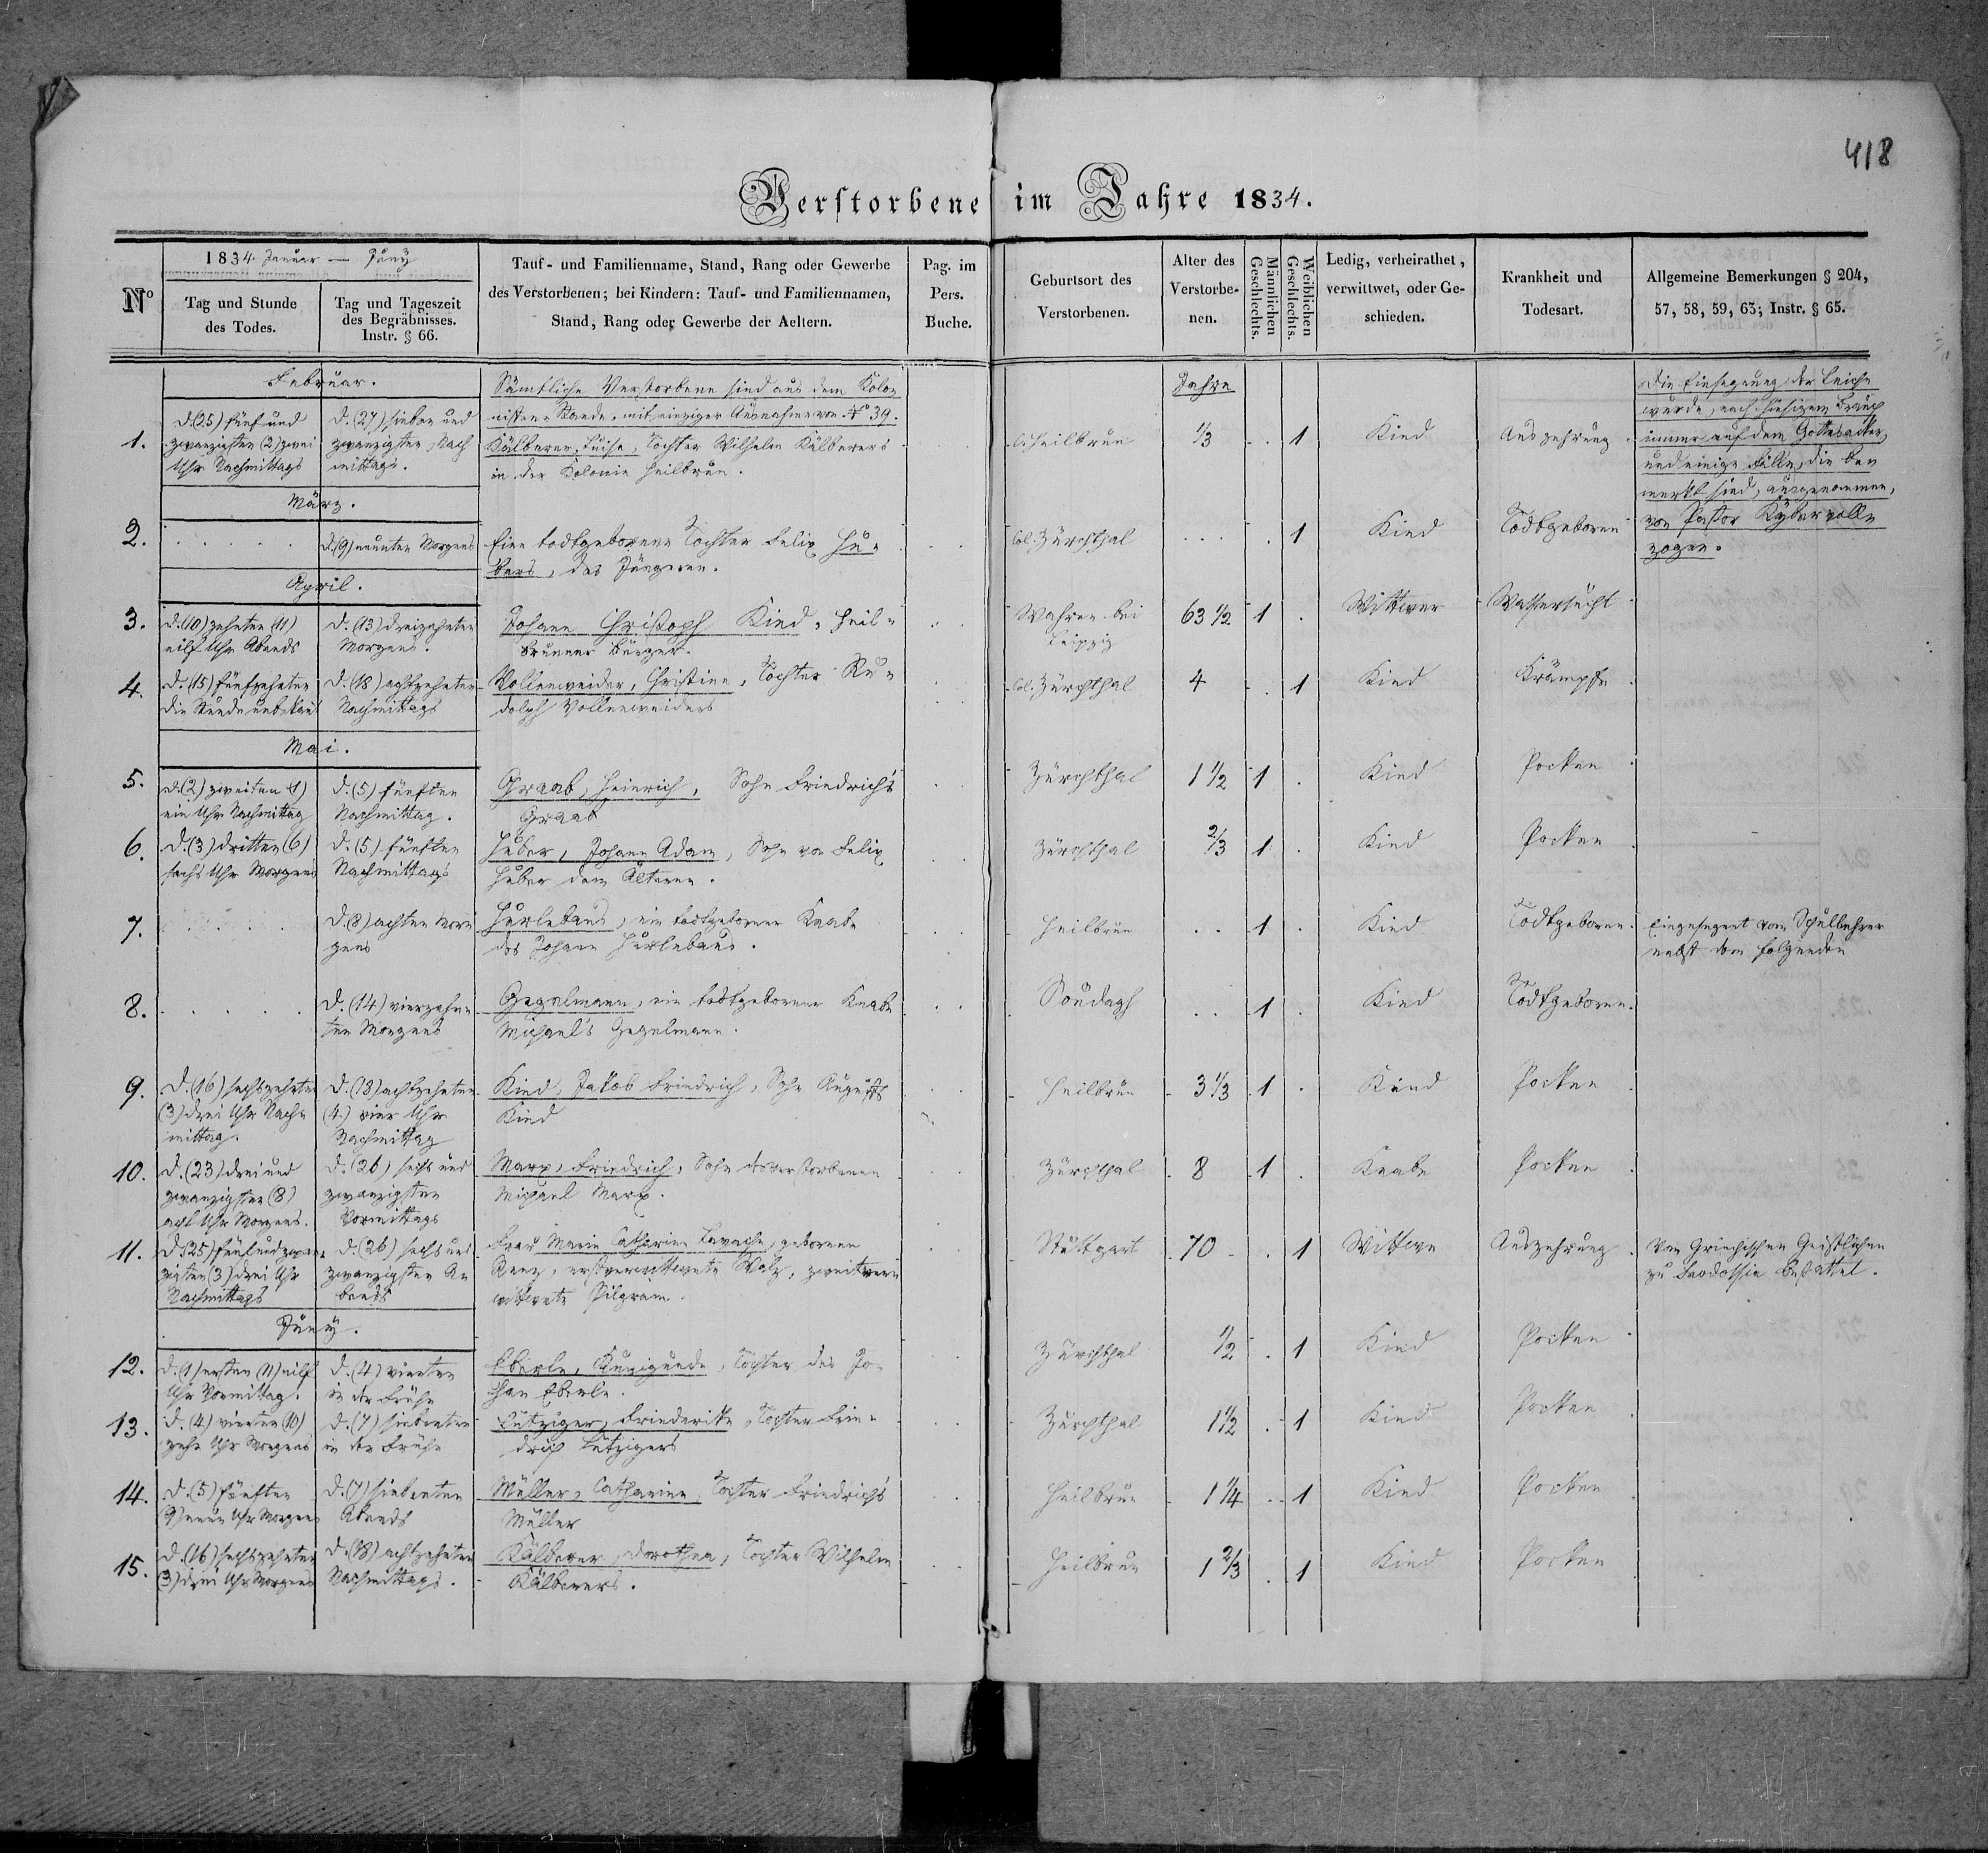 418
Verstorbene im Jahre 1834.
1834 Januar — Juny
Nº
Tag und Stunde
des Todes.
Tag und Tageszeit
des Begräbnisses.
Instr. § 66.
Tauf- und Familienname, Stand, Rang oder Gewerbe
des Verstorbenen; bei Kindern: Tauf- und Familiennamen,
Stand, Rang oder Gewerbe der Aeltern.
Pag. im
Pers.
Buche.
Geburtsort des
Verstorbenen.
Alter des
Verstorbe-
nen.
Männlichen
Geschlechts.
Weiblichen
Geschlechts.
Ledig, verheirathet,
verwittwet, oder Ge-
schieden.
Krankheit und
Todesart.
Allgemeine Bemerkungen § 204,
57, 58, 59, 63; Instr. § 65.
Februar.
Sämtliche Verstorbene sind aus dem Kolo=
nisten=Stande, mit einziger Ausnahme von Nº 39.
Jahre
Die Einsegnung der Leiche
wurde, nach hiesigem Brauch
immer auf dem Gottesacker,
und einige Fälle, die be=
merkt sind, ausgenommen,
von Pastor Kyber voll=
zogen.
1.
d. (25) fünf und
zwanzigsten (2) zwei
Uhr Nachmittags
d. (27) sieben und
zwanzigsten, Nach
mittags.
Kälberer, Luise, Tochter Wilhelm Kälberers
in der Kolonie Heilbrun.
Heilbrun
1/3
1
Kind
Auszehrung
März.
2.
d. (9) neunten Morgens
Eine todtgeborene Tochter Felix Hu=
bers, des Jüngeren.
Col. Zürchthal
1
Kind
Todtgeboren
April.
3.
d. (10) zehnten (11)
eilf Uhr Abends
d. (13) dreizehnten
Morgens.
Johann Christoph Kind, Heil=
brunner Bürger.
Wahren bei
Leipzig
63 1/2
1
Wittwer
Wassersucht
4.
d. (15) fünfzehnten
die Stunde unbekant
d. (18) achtzehnten
Nachmittags
Vollenweider, Christine, Tochter Ru=
dolph Vollenweiders
Col. Zürchthal
4
1
Kind
Krämpfe
Mai.
5.
d. (2) zweiten (1)
ein Uhr Nachmittag
d. (5) fünften
Nachmittag.
Graab, Heinrich, Sohn Friedrich's
Graab
Zürchthal
1 1/2
1
Kind
Pocken
6.
d. (3) dritten (6)
sechs Uhr Morgens
d. (5) fünften
Nachmittags
Huber, Johann Adam, Sohn von Felix
Huber dem Älteren.
Zürchthal
2/3
1
Kind
Pocken
7.
d. (8) achten Mor=
gens
Hurlebaus, ein todtgeborener Knabe
des Johann Hurlebaus.
Heilbrun
1
Kind
Todtgeboren.
Eingesegnet vom Schullehrer
nebst dem folgenden
8.
d. (14) vierzehn=
ten Morgens
Gegelmann, ein todtgeborener Knabe
Michael's Gegelmann.
Soudagh
1
Kind
Todtgeboren.
9.
d. (16) sechszehnten
(3) drei Uhr Nach=
mittag.
d. (18) achtzehnten
(4) vier Uhr
Nachmittag
Kind, Jakob Friedrich, Sohn August's
Kind
Heilbrun
3 1/3
1
Kind
Pocken
10.
d. (23) drei und
zwanzigsten (8)
acht Uhr Morgens.
d. (26) sechs und
zwanzigsten
Vormittags
Marx, Friedrich, Sohn des verstorbenen
Michael Marx.
Zürchthal
8
1
Knabe
Pocken
11.
d. (25) fünf und zwan=
zigsten (3) drei Uhr
Nachmittags
d. (26) sechs und
zwanzigsten A=
bends
Frau Marie Catharine geborene
erstverwittwete Walz, zweitver=
wittwete Pilgram.
Stuttgart
70
1
Wittwe
Auszehrung
Von Griechischen Geistlichen
zu Feodossia bestattet.
Juny.
12.
d. (1) ersten (11) eilf
Uhr Vormittag.
d. (4) vierten
in der Frühe
Eberle, Kunigunde, Tochter des Jo=
han Eberle.
Zürchthal
1/2
1
Kind
Pocken
13.
d. (4) vierten (10)
zehn Uhr Morgens
d. (7) siebenten
in der Frühe
Lutziger, Friederike, Tochter Frie=
drich Lutzigers
Zürchthal
1 1/2
1
Kind
Pocken
14.
d. (5) fünften
(9) neun Uhr Morgens
d. (7) siebenten
Abends
Müller, Catharine, Tochter Friedrich's
Müller
Heilbrun
1 1/4
1
Kind
Pocken
15.
d. (16) sechszehnten
(3) drei Uhr Morgens
d. (18) achtzehnten
Nachmittags.
Kälberer, Dorothea, Tochter Wilhelm
Kälberers.
Heilbrun
1 2/3
1
Kind
Pocken